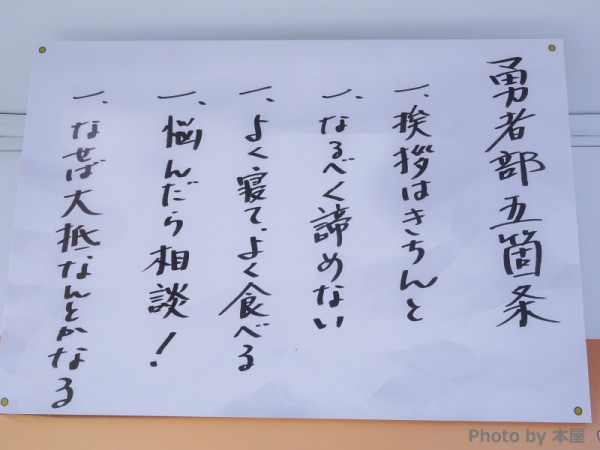 勇者部五箇条
一、挨拶はきちんと
一、なるべく諦めない
一、よく寝て、よく食べる
一、悩んだら相談!
一、なせば大抵なんとかなる
Photo by 本屋